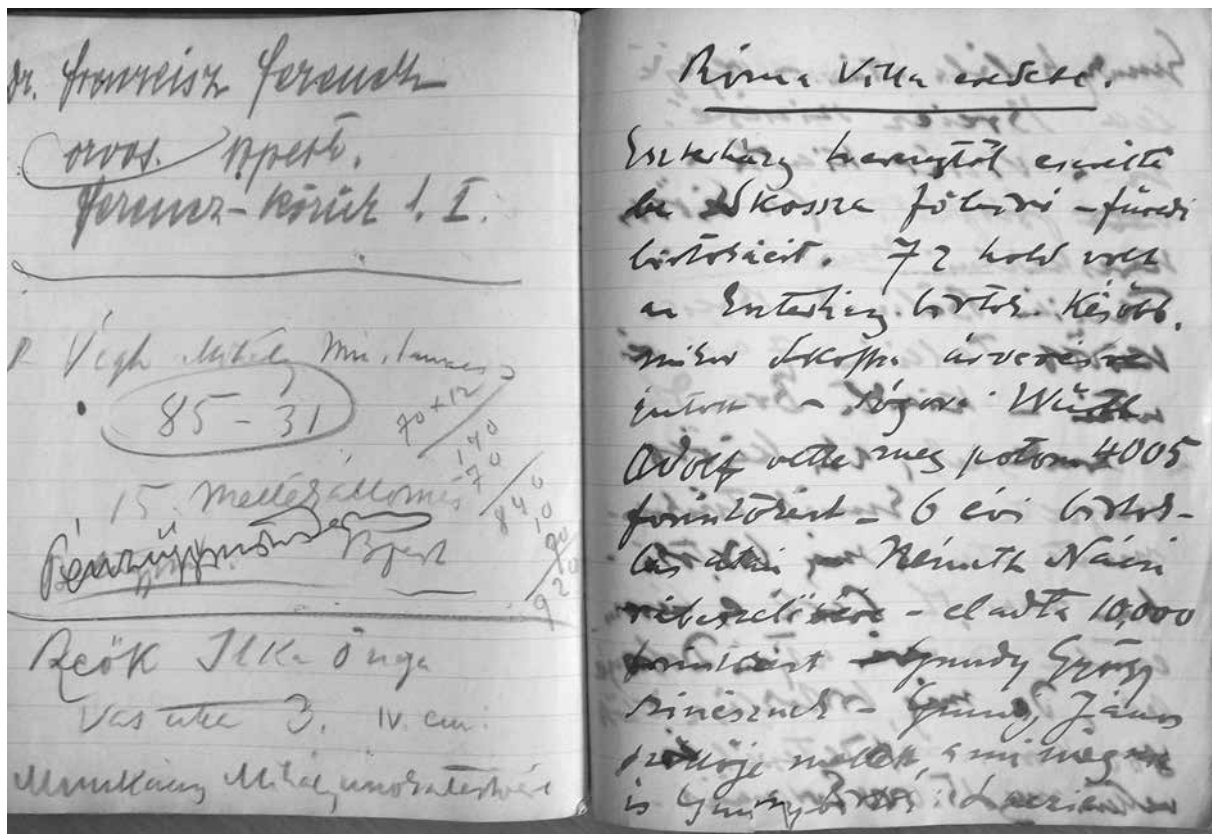 Dr. Ferencz
orvos. Bpest.
Ferencz-körút 1. I.
Végh Mihály Min.
85-31
70+12
140
70
840
10
90
920
15. Mellékállomás
Bpest
Reök Ilka Őnga
Vas utca 3. IV. em.
Munkácsy Mihály unokatestvére
Róma Villa eredete.
Eszterházy hercegtől cserélte
be Skossza földvári-füredi
birtokáért. 72 hold volt
az Eszterházy birtok. Később,
mikor árverésre
jutott - Würth
Adolf vette meg potom 4005
forintokért - 6 évi birtok-
lás után - Németh Náci
rábeszélésére - eladta 10,000
forintért - Gundy György
színésznek - Gundy János
szőlője mellett, ami még ma
is Gundy